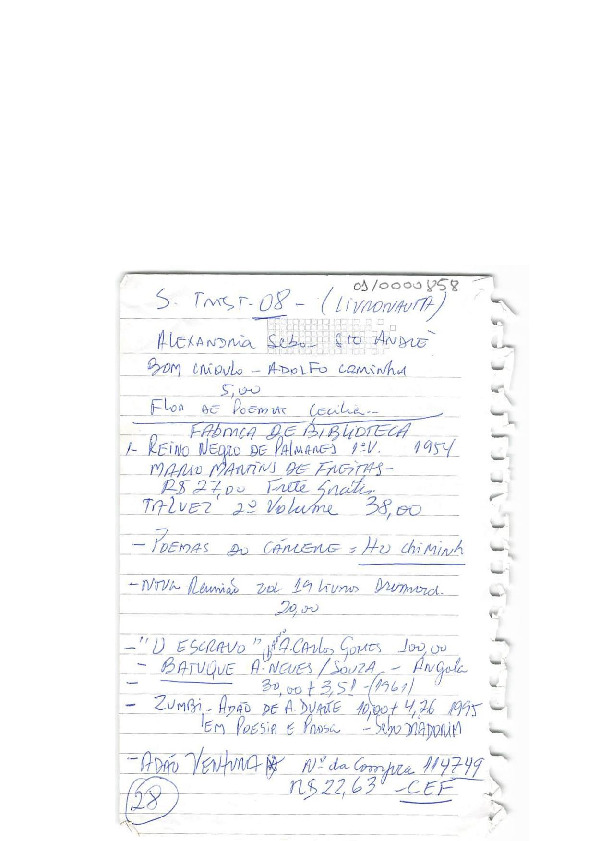 01/0000858
S. 08 - (LIVRONAUTA)
ALEXANDRIA Sebo - STO ANDRÉ
BOM CRIOULO - ADOLFO Caminha
5,00
FLOR DE POEMAS Cecília -
FÁBRICA DE BIBLIOTECA
1- REINO NEGRO DE PALMARES 1º V. 1954
MARIO MARTINS DE FREITAS -
R$ 27,00 Frete Grátis
TALVEZ 2º Volume 38,00
- POEMAS DO CÁRCERE = HO Chiminh
- NOVA Reunião 19 Livros Drumond.
20,00
- "O ESCRAVO" A. CARLOS GOMES 100,00
- BATUQUE A. NEVES / SOUZA - Angola
- 30,00 + 3,51 - (1961)
- ZUMBI - ADÃO DE A. DUARTE 10,00 + 4,26 1995
EM POESIA E PROSA - Sebo DIADORIM
- ADÃO VENTURA Nº da Compra 114749
R$ 22,63 - CEF
28